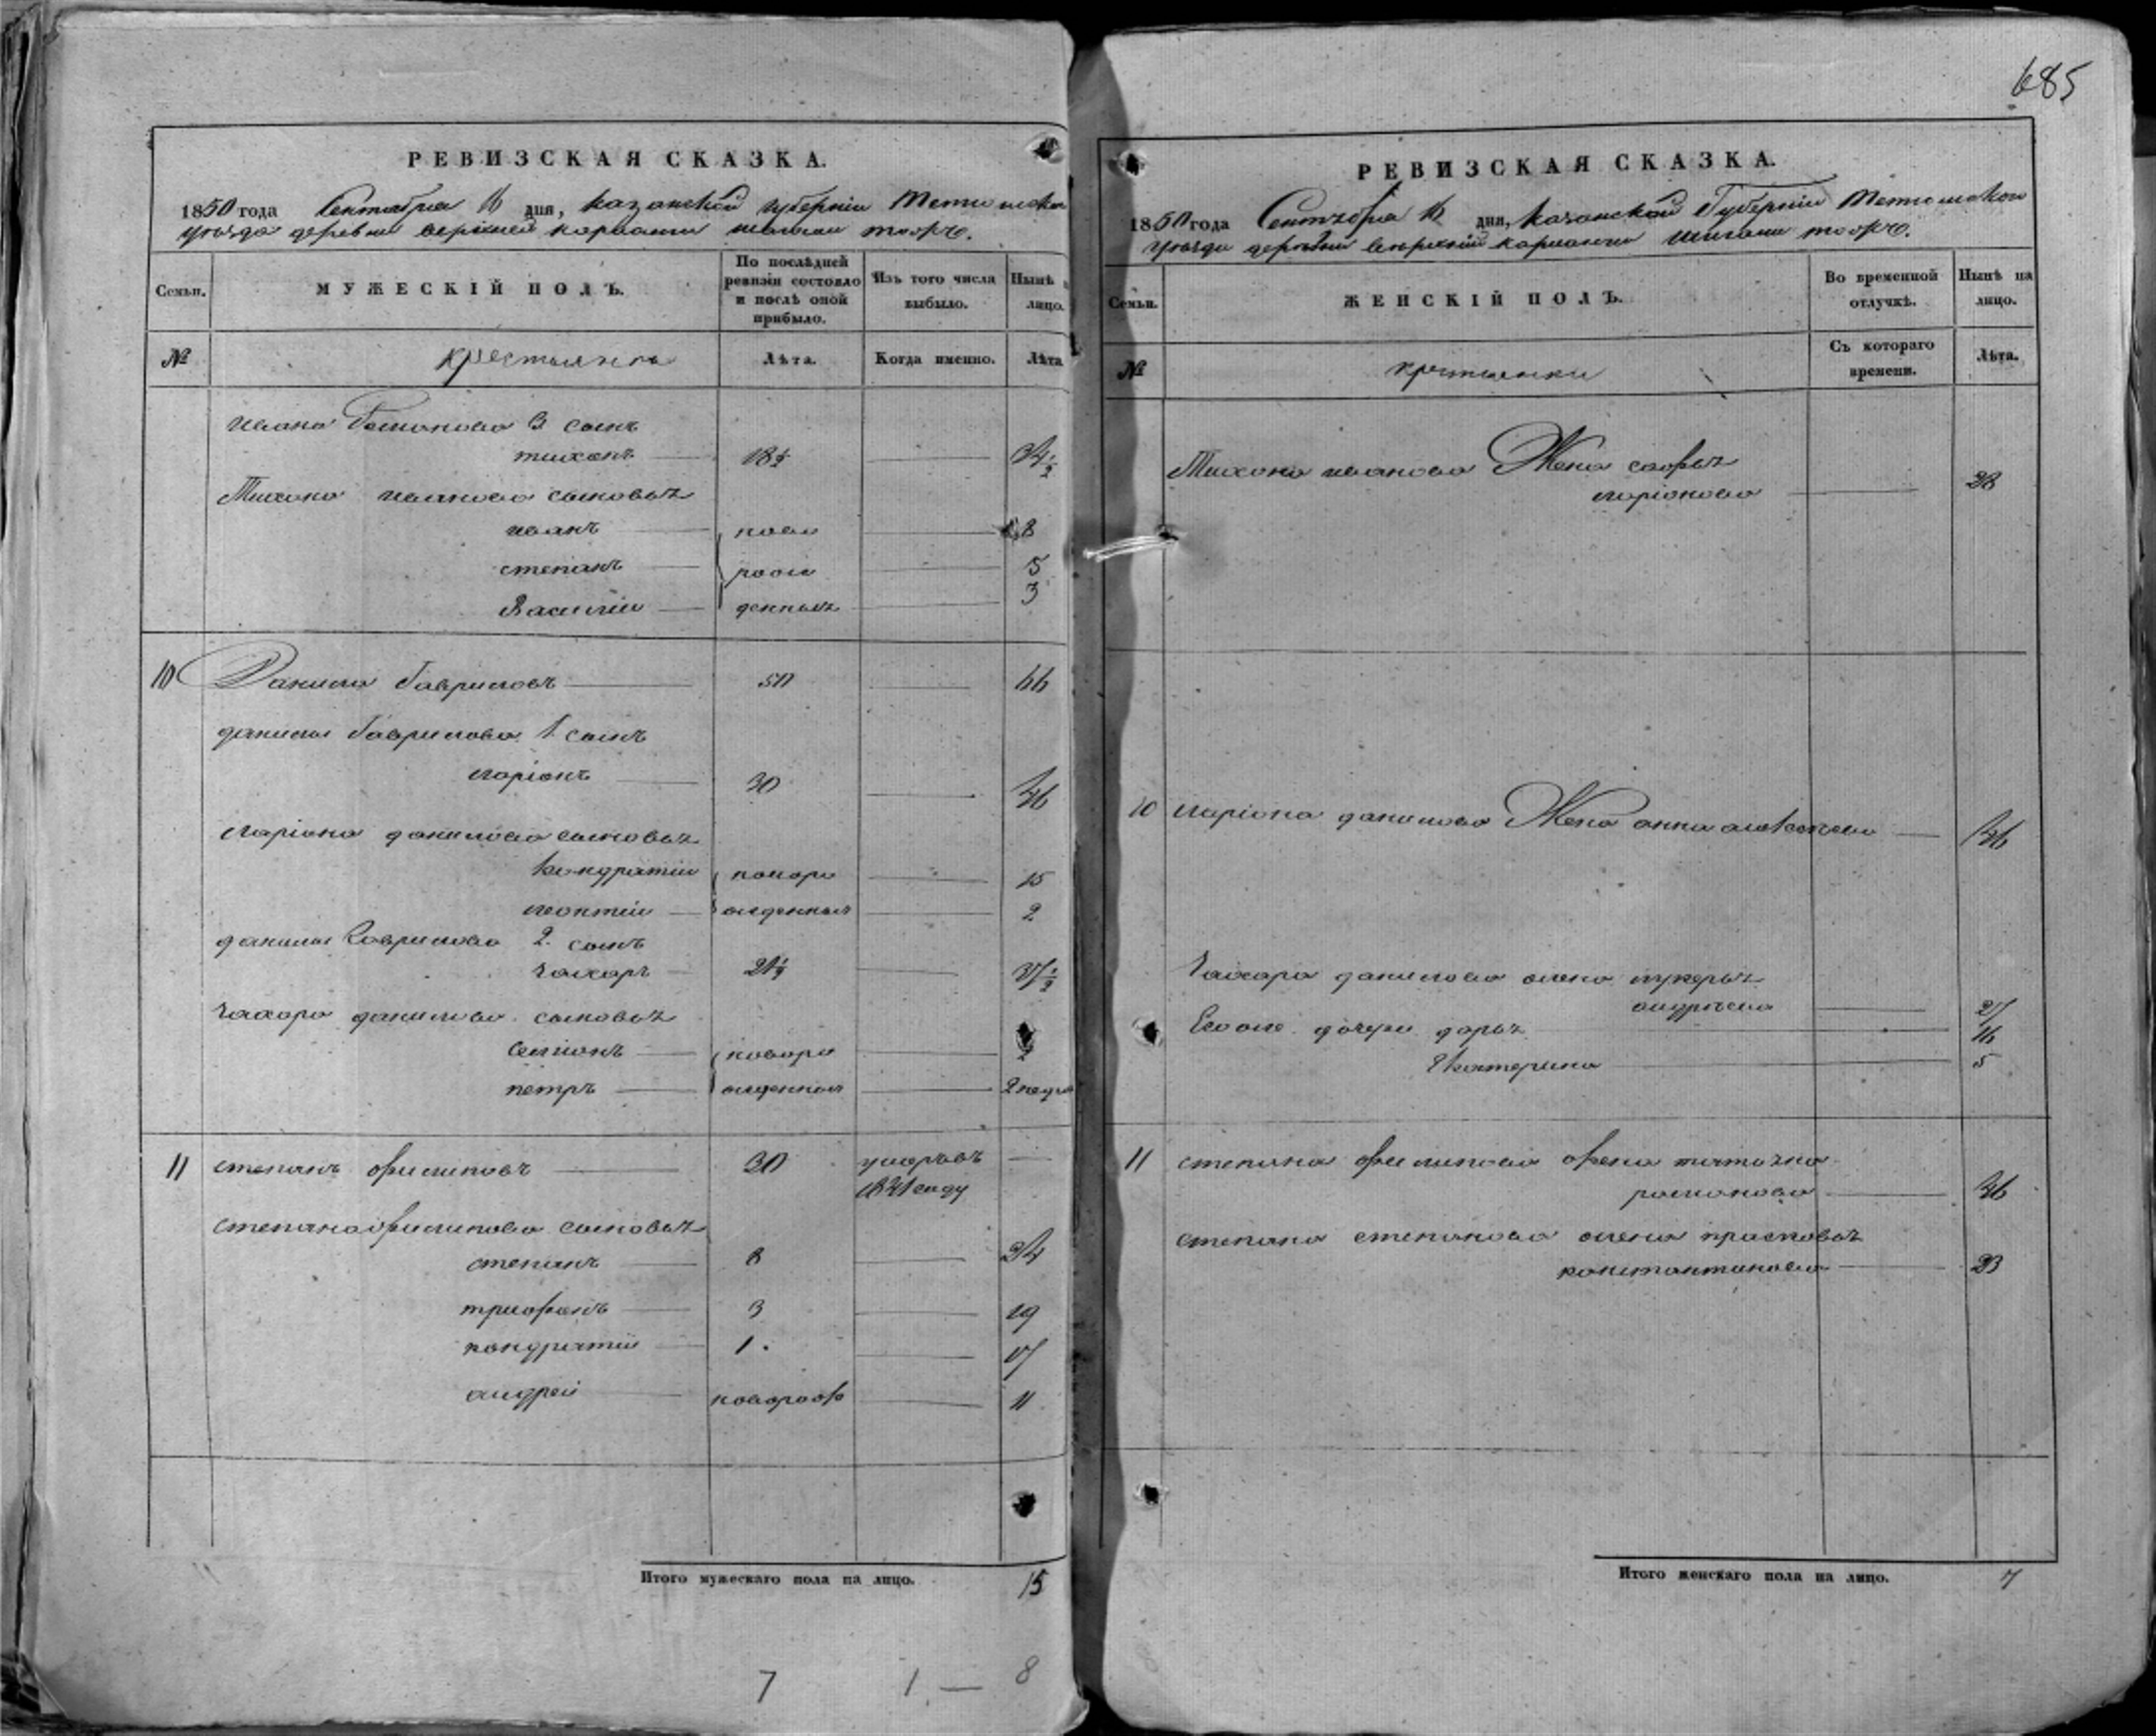 685
РЕВИЗСКАЯ СКАЗКА.
1850 года Сентября 16 дня, Казанской губернiи Тетюшскаго
уезда деревни верхней
Семьи.
МУЖЕСКIЙ ПОЛЪ.
По послѣдней ревизiи состояло и послѣ оной прибыло.
Изъ того числа выбыло.
Нынѣ лицо.
№
крестьянъ
Лѣта.
Когда именно.
Лѣта
Ивана 3 сынъ
тихонъ 18½ 34½
Тихона иванова сыновья
иванъ ново 8
степанъ рож 5
Василiи денныя 3
10 Данила Гавриловъ 50 66
данилы Гаврилова 1 сынъ
ларiонъ 30 46
ларiона данилова сыновья
Кондратiи новоро 15
леонтiи жденныя 2
данилы Гаврилова 2. сынъ
захаръ 21½ 37½
захара данилова сыновья
Семiонъ новоро
петръ жденныя 2 неде
11 степанъ филиповъ 30 умеръ въ
1841 году
степана филипова сыновья
степанъ 8 24
трифонъ 3 19
кондратiи 1. 17
андрей новорож 11
Итого мужескаго пола на лицо. 15
7 1 — 8
РЕВИЗСКАЯ СКАЗКА.
1850 года Сентября 16 дня, Казанской Губернiи Тетюшскаго
уезда деревни верхнiй
Семьи.
ЖЕНСКIЙ ПОЛЪ.
Во временной отлучкѣ.
Нынѣ на лицо.
№
крестьянки
Съ котораго времени.
Лѣта.
Тихона иванова Жена софья
ларiонова 28
10 ларiона данилова Жена анна алексеева 46
Захара данилова жена лукерья
андреева 27
Его же дочери дарья 16
Екатерина 5
11 степана филипова жена татьяна
романова 46
степана степанова жена прасковья
константинова 23
Итого женскаго пола на лицо. 7